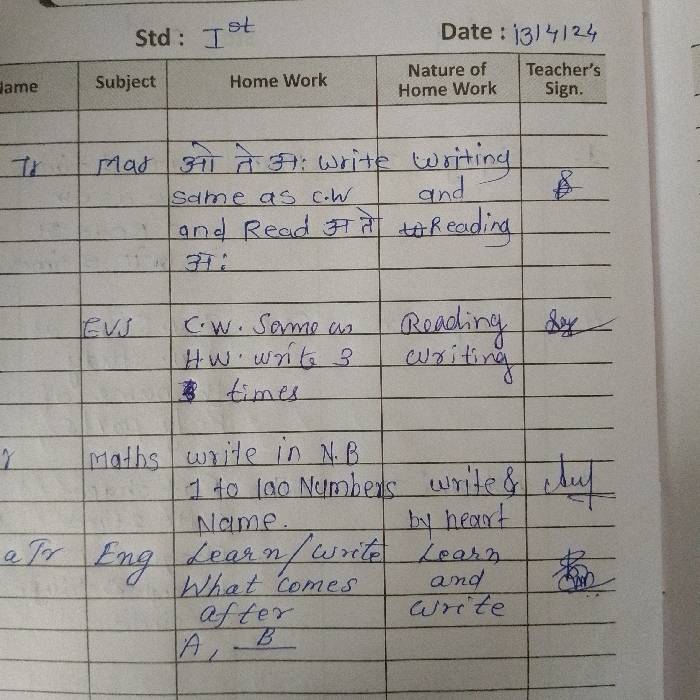 Std : Ist Date : 13/4/24
Name Subject Home Work Nature of Home Work Teacher's Sign.
Tr Mar ओ ते अः write writing
same as C.W and
and Read अ ते Reading
अः
EVS C.W. Same as Reading
H.W. write 3 writing
times
Maths write in N.B
1 to 100 Numbers write &
Name. by heart
a Tr Eng Learn/write Learn
What comes and
after write
A, B